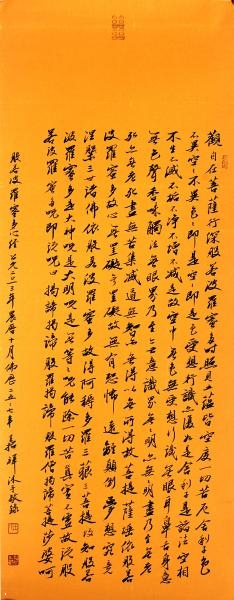 觀自在菩薩行深般若波羅蜜多時照見五蘊皆空度一切苦厄舍利子色
不異空空不異色色即是空空即是色受想行識亦復如是舍利子是諸法空相
不生不滅不垢不淨不增不減是故空中無色無受想行識無眼耳鼻舌身意
無色聲香味觸法無眼界乃至無意識界無無明亦無無明盡乃至無老
死亦無老死盡無苦集滅道無智亦無得以無所得故菩提薩埵依般若
波羅蜜多故心無罣礙無罣礙故無有恐怖遠離顛倒夢想究竟
涅槃三世諸佛依般若波羅蜜多故得阿耨多羅三藐三菩提故知般若
波羅蜜多是大神咒是大明咒是無上咒是無等等咒能除一切苦真實不虛故說般
若波羅蜜多咒即說咒曰揭諦揭諦般羅揭諦般羅僧揭諦菩提莎婆呵
般若波羅蜜多心經 公元二〇一三年農曆十月佛曆二五五七年 沐手敬錄